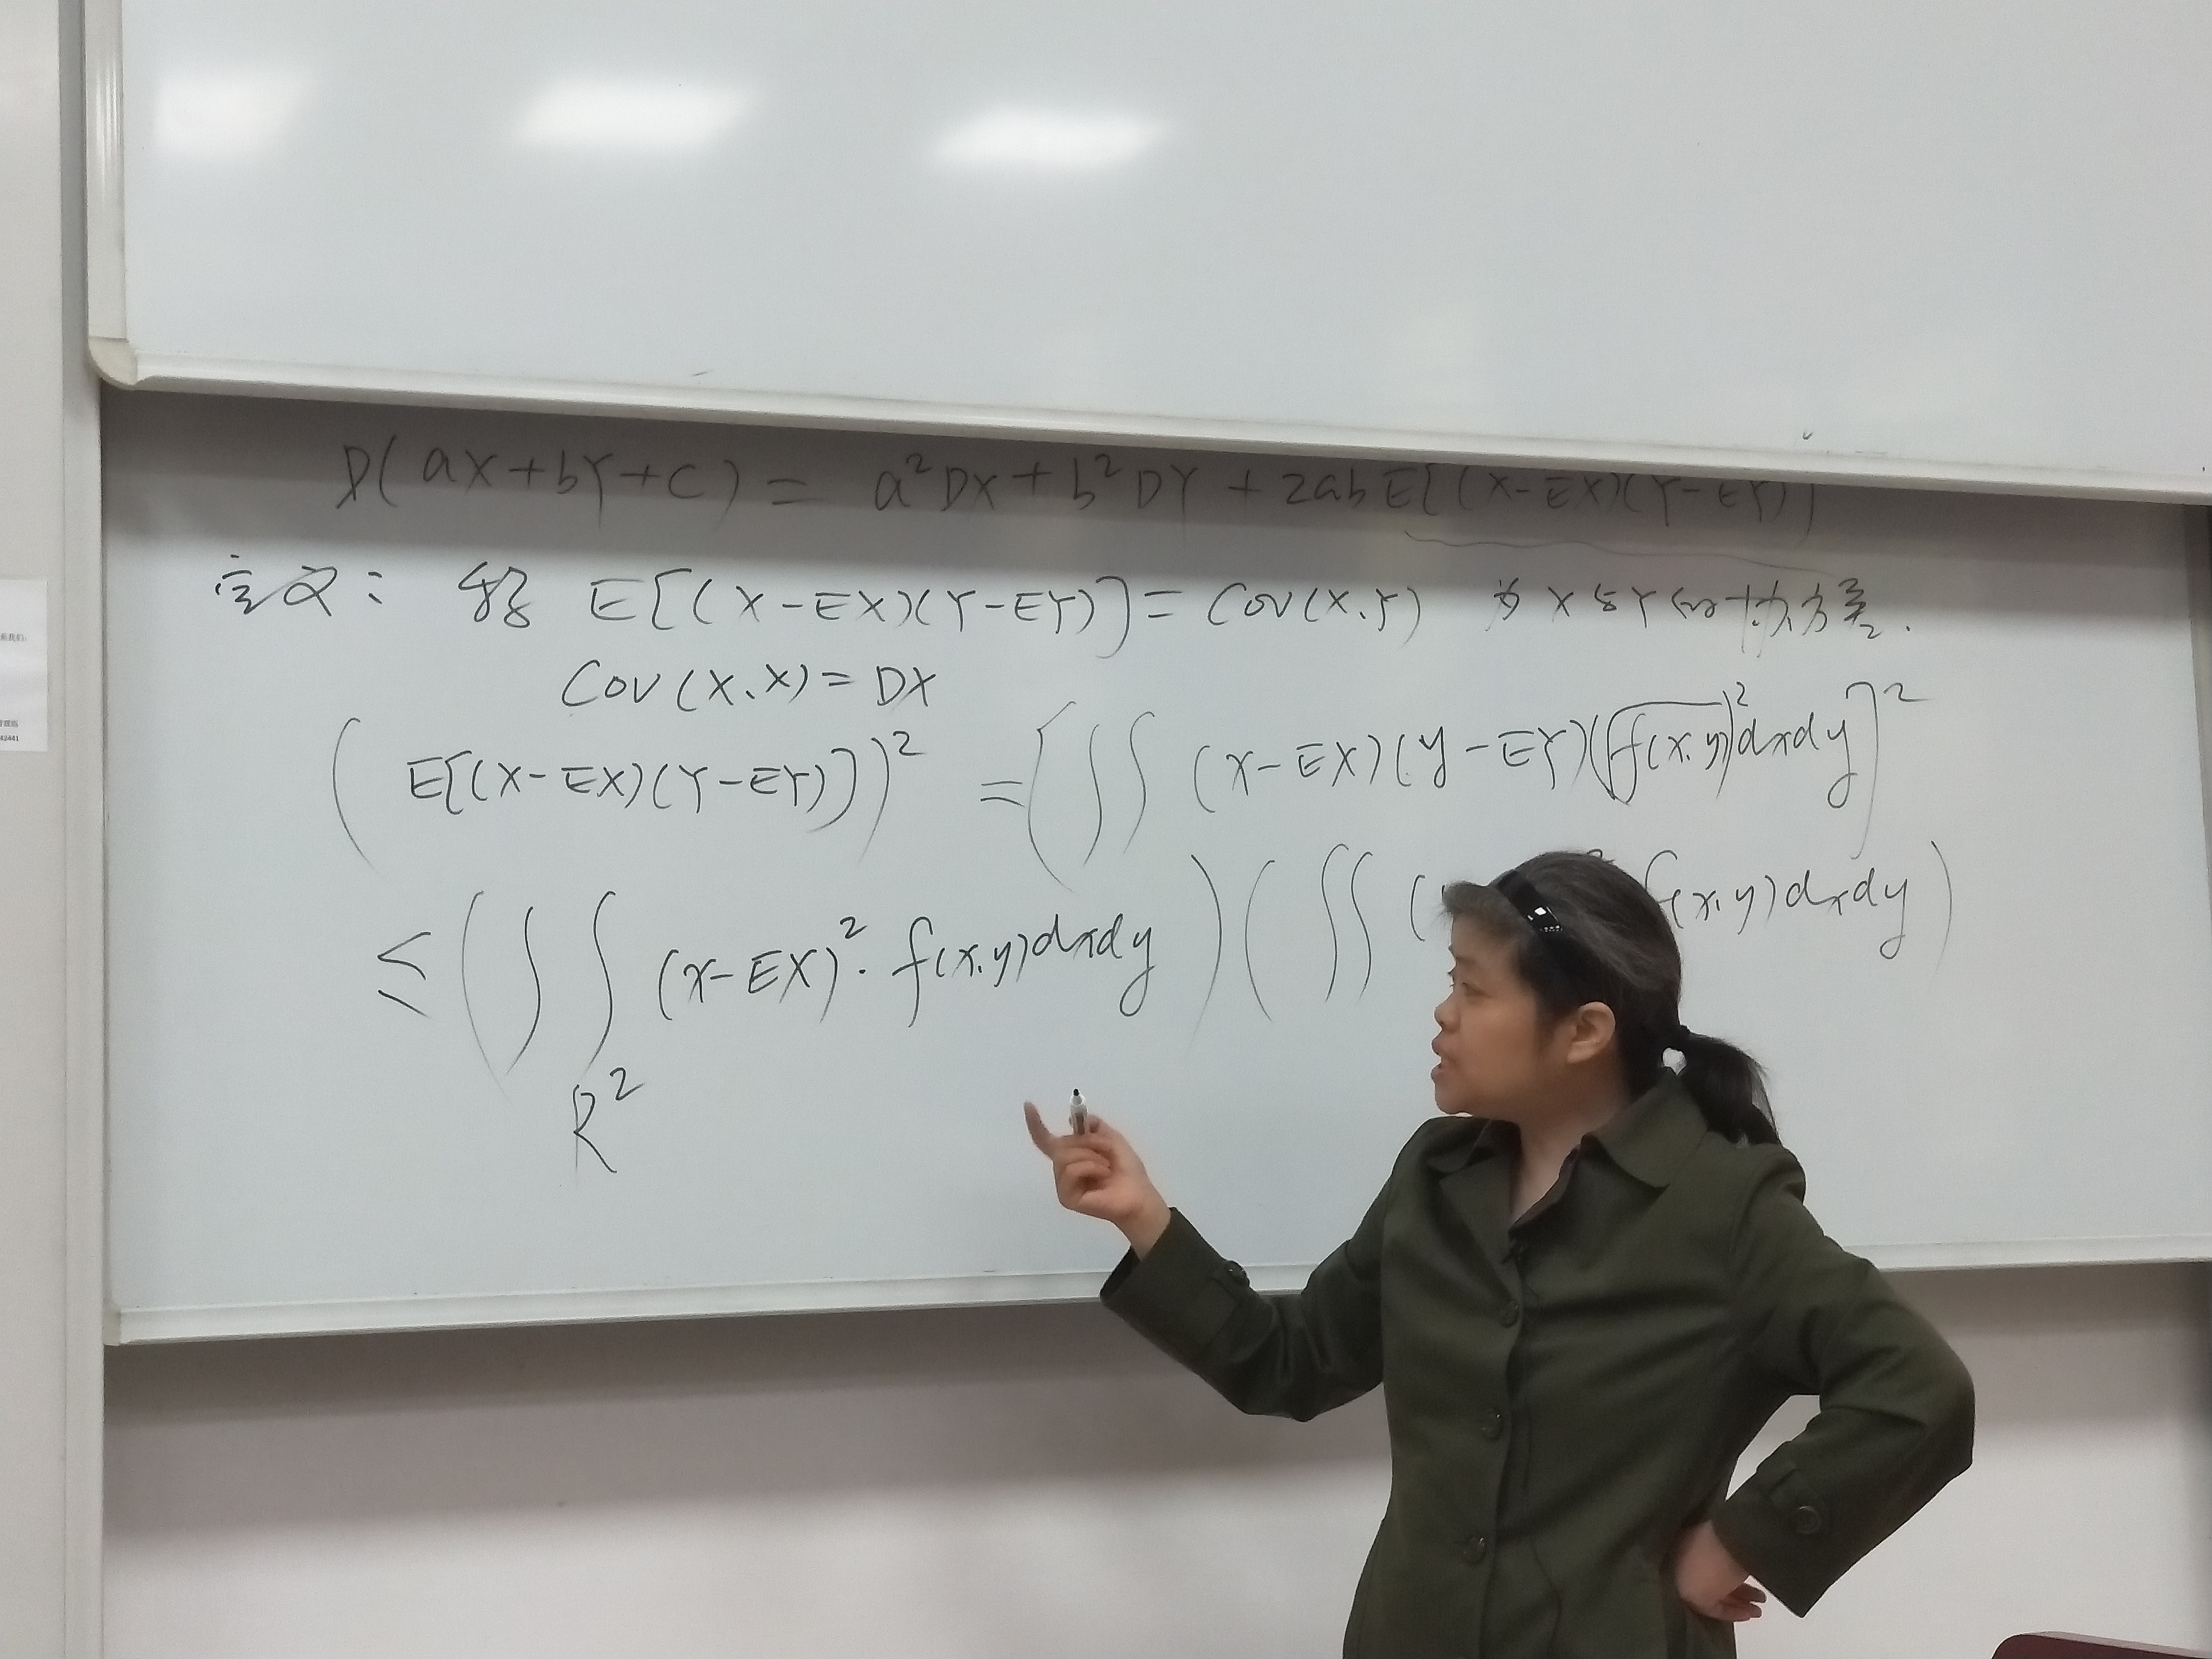 D(aX+bY+c) = a²DX + b²DY + 2abE[(X-EX)(Y-EY)]
定义: 称 E[(X-EX)(Y-EY)] = Cov(X,Y) 为X与Y的协方差.
Cov(X,X) = DX
(E[(X-EX)(Y-EY)])² = [∬(x-EX)(y-EY)(√f(x,y))²dxdy]²
≤ (∬(x-EX)²·f(x,y)dxdy)(∬( f(x,y)dxdy)
R²
42441